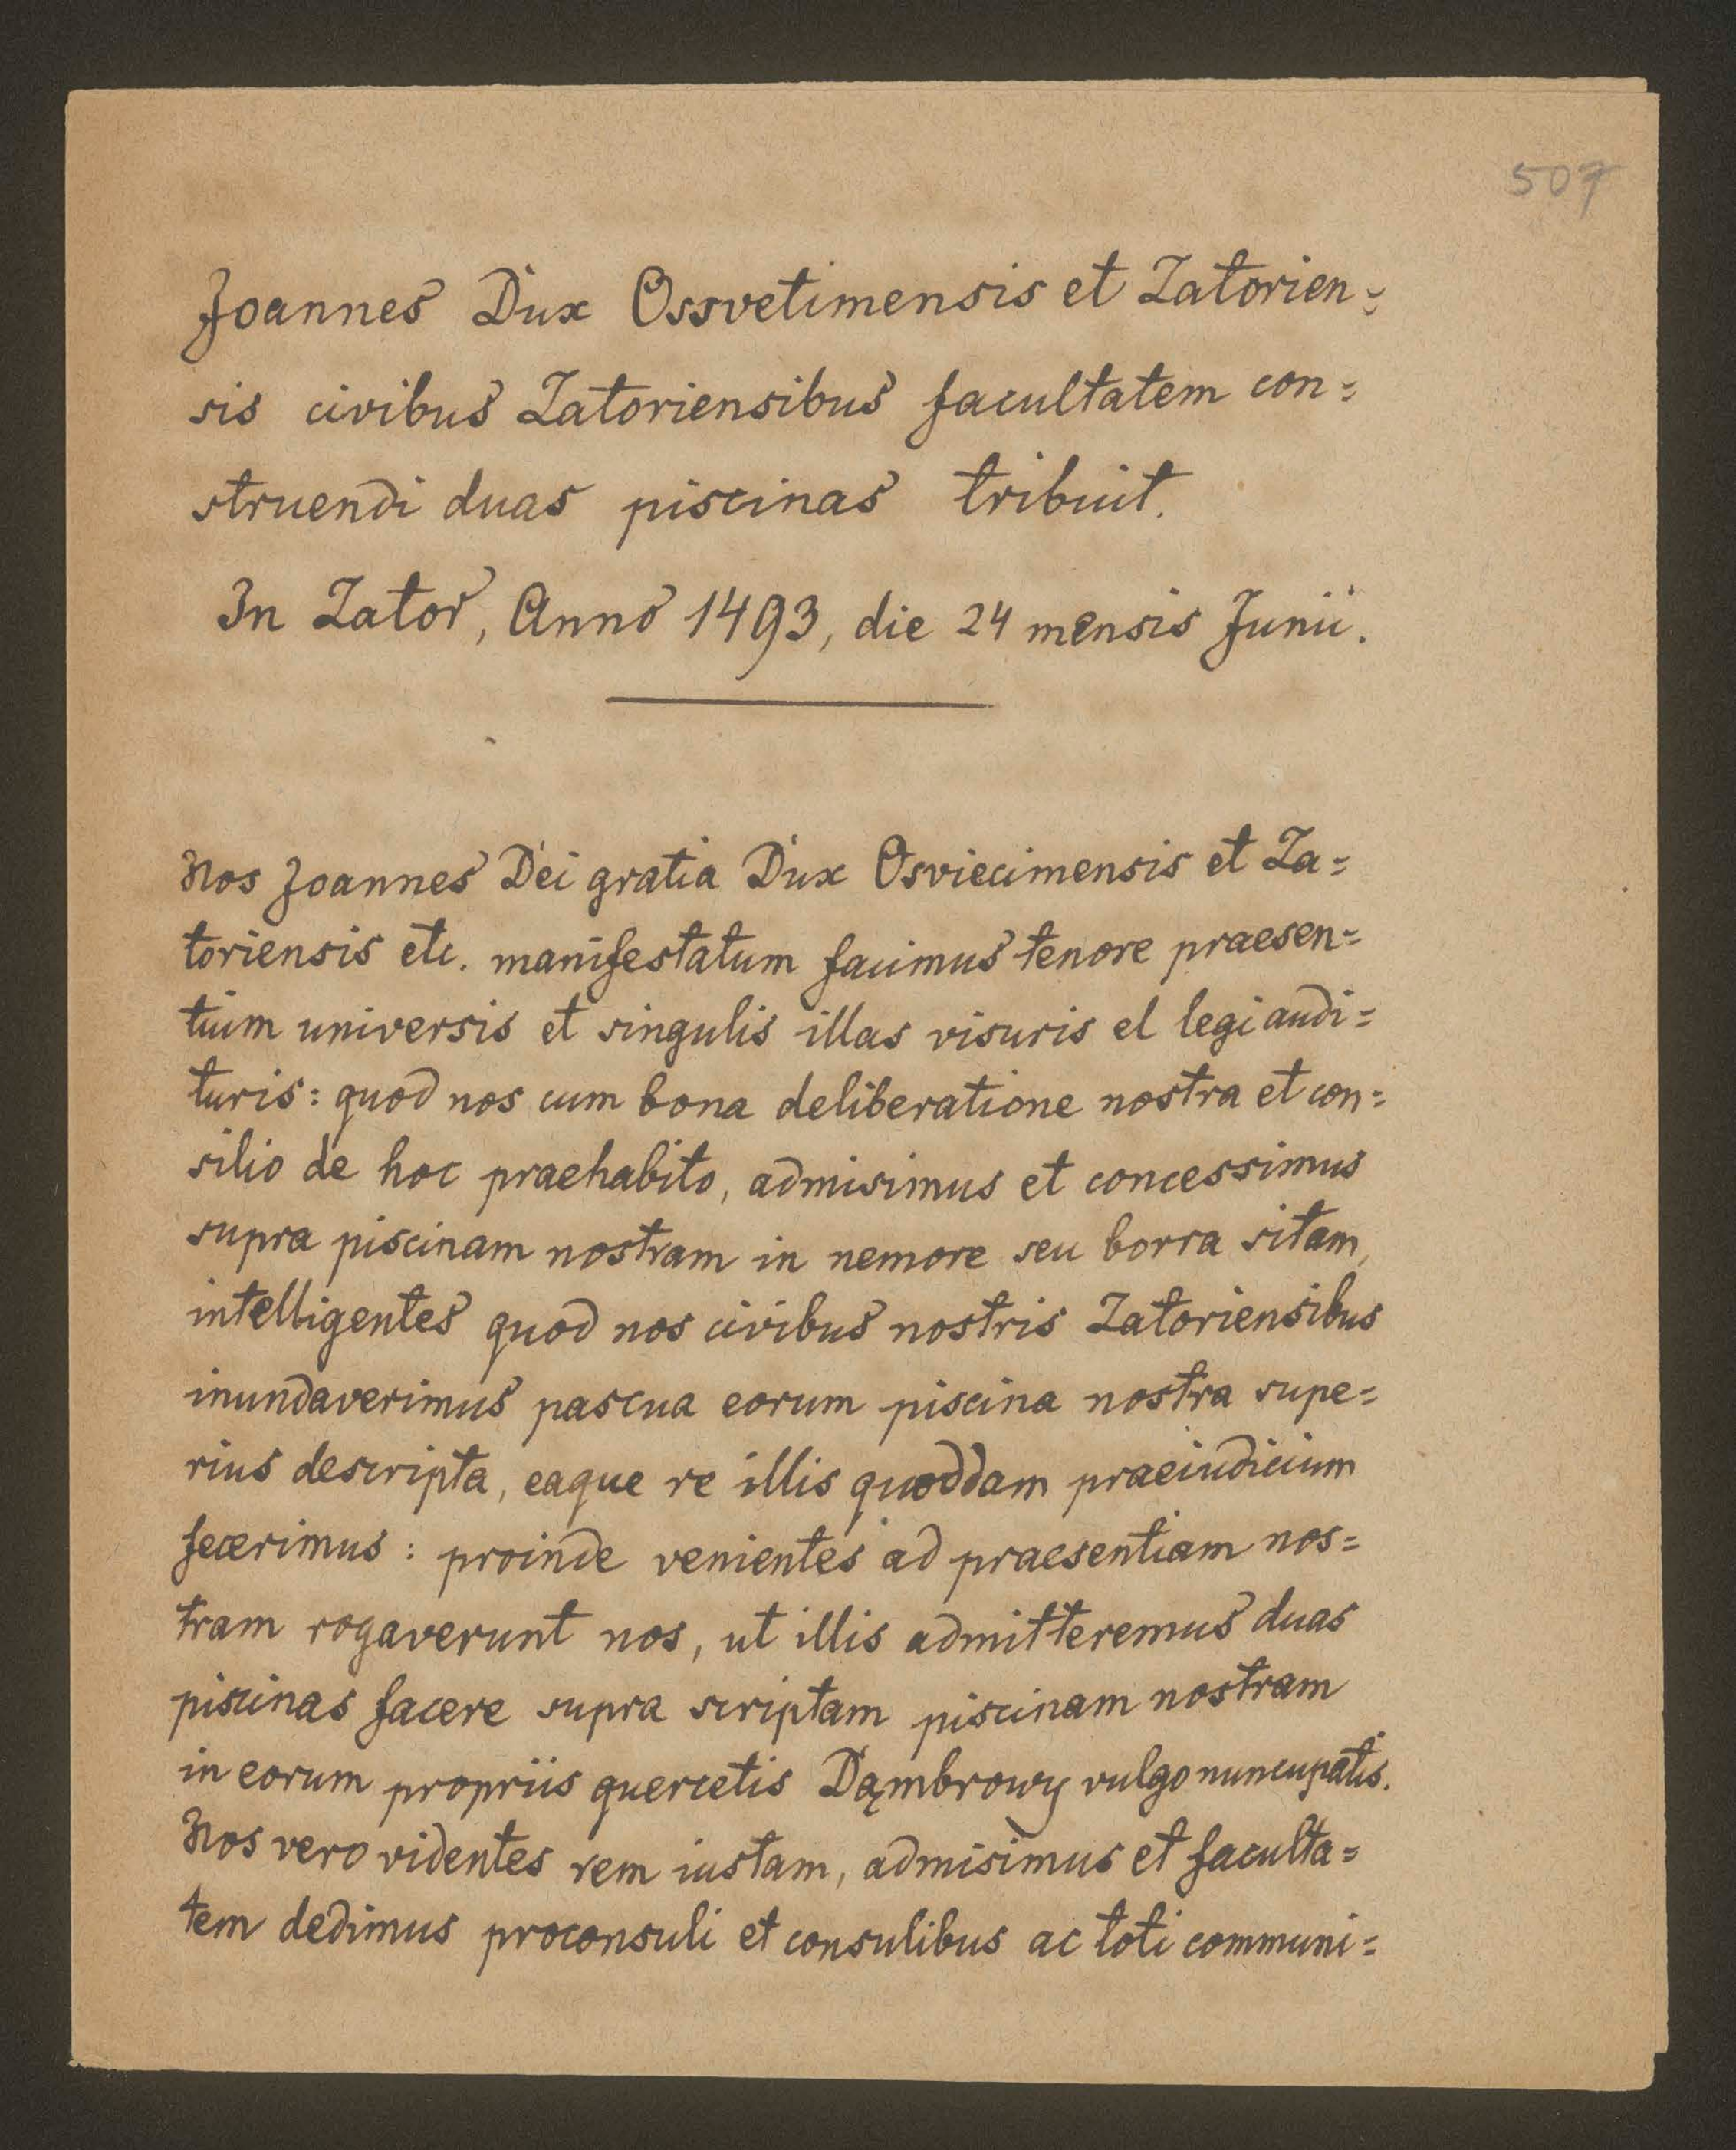 507
Joannes Dux Ossvetimensis et Zatorien=
sis civibus Zatoriensibus facultatem con=
struendi duas piscinas tribuit.
In Zator, Anno 1493, die 24 mensis Junii.
Nos Joannes Dei gratia Dux Osviecimensis et Za=
toriensis etc. manifestatum facimus tenore praesen=
tium universis et singulis illas visuris el legi audi=
turis: quod nos cum bona deliberatione nostra et con=
silio de hoc praehabito, admisimus et concessimus
supra piscinam nostram in nemore seu borra sitam,
intelligentes quod nos civibus nostris Zatoriensibus
inundaverimus pascua eorum piscina nostra supe=
rius descripta, eaque re illis quoddam praeiudicium
fecerimus: proinde venientes ad praesentiam nos=
tram rogaverunt nos, ut illis admitteremus duas
piscinas facere supra scriptam piscinam nostram
in eorum propriis quercetis Dąmbrowy vulgo nuncupatis.
Nos vero videntes rem iustam, admisimus et faculta=
tem dedimus proconsuli et consulibus ac toti communi=